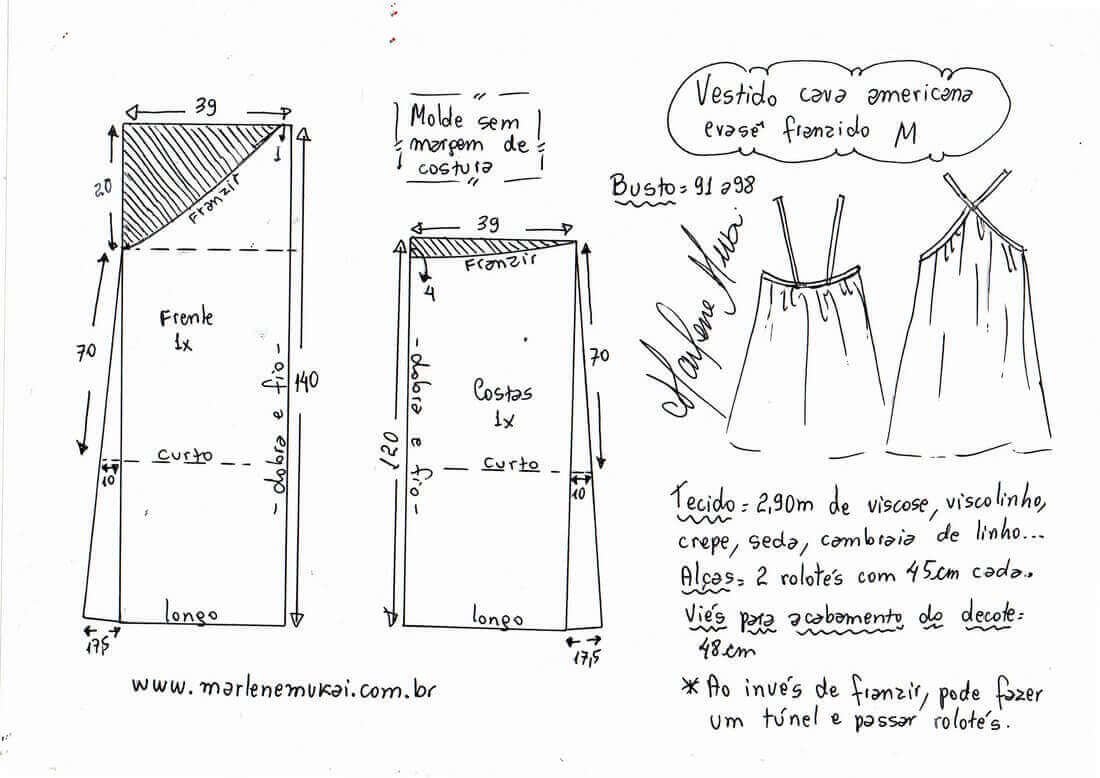 Vestido cava americana
evasê franzido M
Molde sem
margem de
costura
Busto = 91 a 98
39
20
1
Franzir
Frente
1x
70
140
dobra e fio
curto
10
longo
17,5
39
Franzir
4
Costas
1x
70
120
dobra e fio
curto
10
longo
17,5
Marlene Mukai
Tecido = 2,90m de viscose, viscolinho,
crepe, seda, cambraia de linho...
Alças = 2 rolotés com 45cm cada..
Viés para acabamento do decote =
48cm
* Ao invés de franzir, pode fazer
um túnel e passar rolotés.
www.marlenemukai.com.br